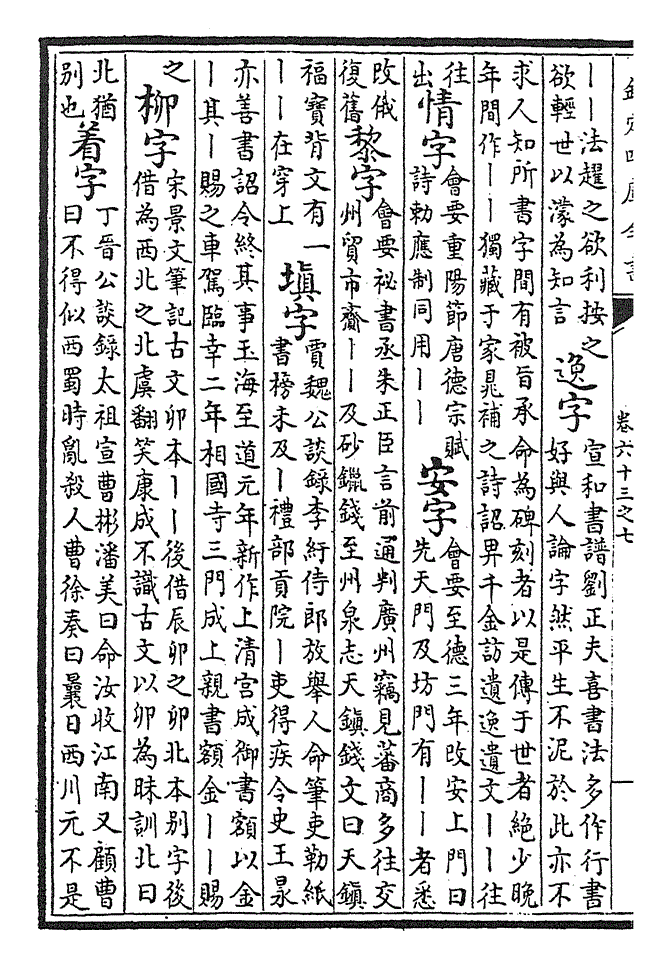 欽定四庫全書
卷六十三之七
丨丨法趯之欲利按之
欲輕世以濛為知言
逸字
宣和書譜劉正夫喜書法多作行書
好與人論字然平生不泥於此亦不
求人知所書字間有被旨承命為碑刻者以是傳于世者絶少晚
年間作丨丨獨藏于家晁補之詩詔畀千金訪遺逸遺文丨丨往
往
出
情字
會要重陽節唐德宗賦
詩勅應制同用丨丨
安字
會要至德三年改安上門曰
先天門及坊門有丨丨者悉
改俄
復舊
黎字
會要祕書丞朱正臣言前通判廣州竊見蕃商多往交
州貿市齎丨丨及砂鑞錢至州泉志天鎮錢文曰天鎮
福寶背文有一
丨丨在穿上
填字
賈魏公談録李紆侍郎放舉人命筆吏勒紙
書榜未及丨禮部貢院丨吏得疾令史王㫤
亦善書詔令終其事玉海至道元年新作上清宫成御書額以金
丨其丨賜之車駕臨幸二年相國寺三門成上親書額金丨丨賜
之
栁字
宋景文筆記古文卯本丨丨後借辰卯之卯北本别字後
借為西北之北虞翻笑康成不識古文以卯為昧訓北曰
北猶
别也
着字
丁晉公談録太祖宣曹彬潘美曰命汝收江南又顧曹
曰不得似西蜀時亂殺人曹徐奏曰曩日西川元不是